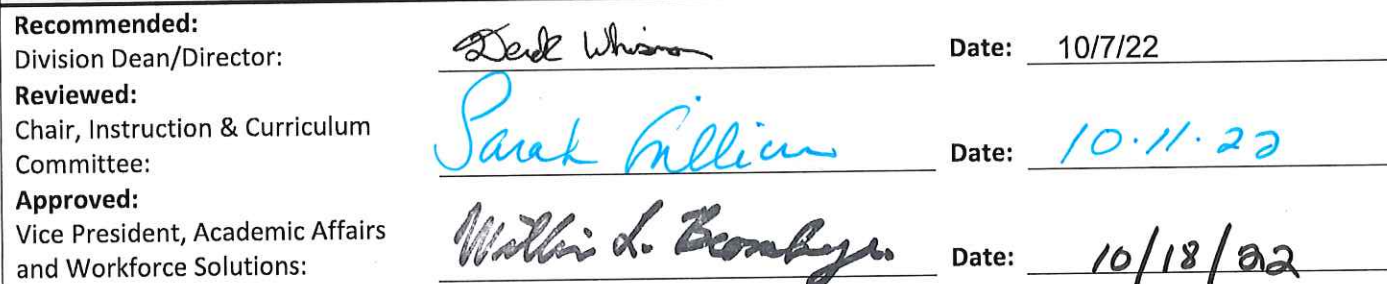 Recommended:
Division Dean/Director: Date: 10/7/22
Reviewed:
Chair, Instruction & Curriculum
Committee: Sarah Date: 10.11.22
Approved:
Vice President, Academic Affairs
and Workforce Solutions: L. Date: 10/18/22